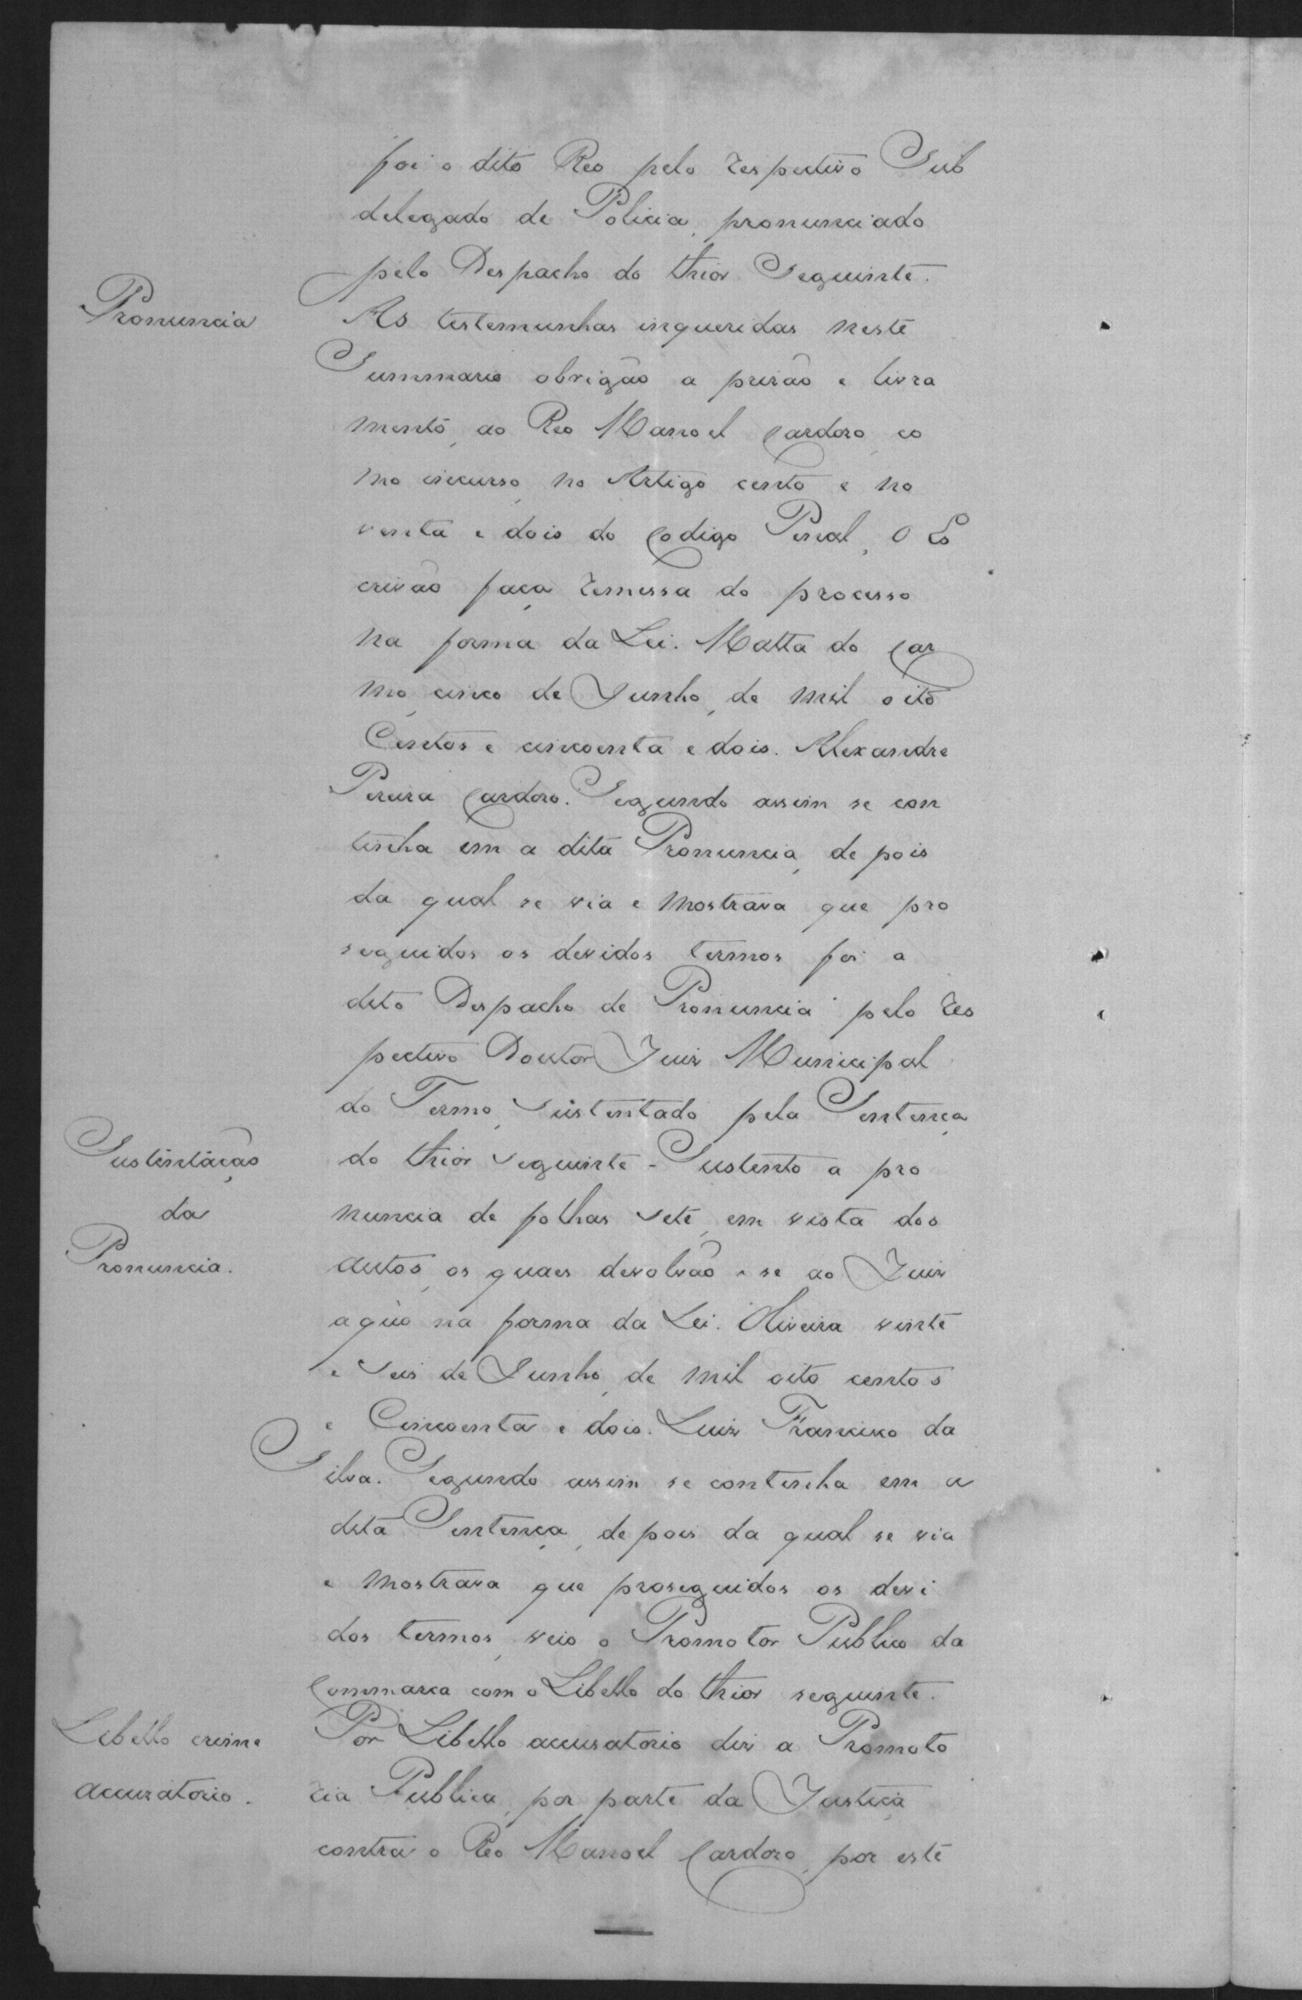 foi o dito Reo pelo respectivo Sub
delegado de Policia, pronunciado
pelo Despacho do thior Seguinte.
Pronuncia
As testemunhas inqueridas neste
Summario obrigão a prisão e livra
mento, ao Reo Manoel Cardozo, co
mo incurso, no Artigo cento e no
venta e dois do Codigo Penal, O Es
crivão faça remessa do processo
na forma da Lei. Matta do Car
mo, cinco de Junho, de mil oito
Centos e cincoenta e dois. Alexandre
Pereira Cardozo. Segundo assim se con
tinha em a dita Pronuncia, de pois
da qual se via e mostrava que pro
seguidos os devidos termos foi a
dito Despacho de Pronuncia pelo res
pectivo Doutor Juiz Municipal
do Termo, Sustentado pela Sentença
Sustentação
da
Pronuncia.
do thior seguinte - Sustento a pro
nuncia de folhas sete, em vista dos
autos, os quaes devolvão-se ao Juiz
aquo na forma da Lei. Oliveira vinte
e seis de Junho, de mil oito centos
e Cincoenta e dois. Luiz Francisco da
Silva. Segundo assim se continha em a
dita Sentença, de pois da qual se via
e mostrava que proseguidos os devi
dos termos, veio o Promotor Publico da
Commarca com o Libello do thior seguinte.
Libello crime
accuzatorio.
Por Libello accusatorio diz a Promoto
ria Publica, por parte da Justiça
contra o Reo Manoel Cardozo, por este